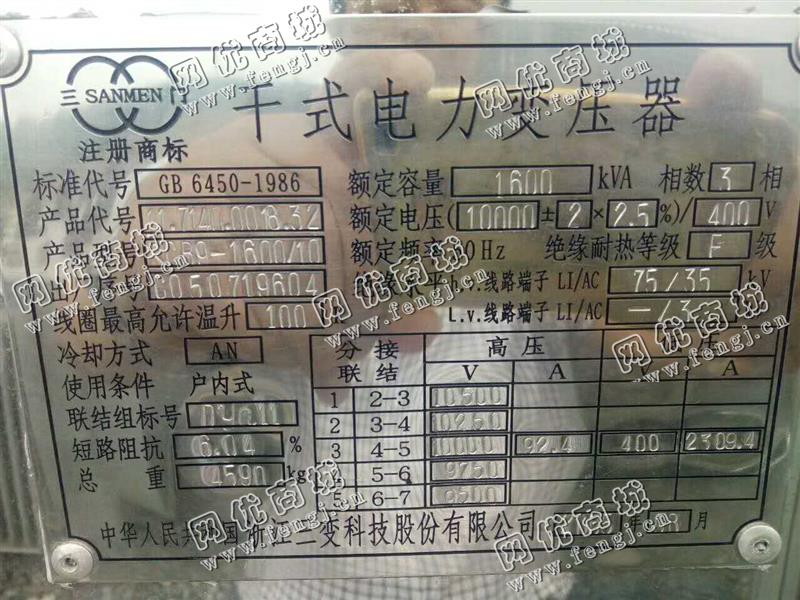 三 SANMEN 门
注册商标
干式电力变压器
标准代号 GB 6450-1986 额定容量 1600 kVA 相数 3 相
产品代号 额定电压(10000±2×2.5%)/400 V
产品型号 B9-1600/10 额定频率 50Hz 绝缘耐热等级 F 级
出厂序号 G050719604 绝缘水平 h.v.线路端子 LI/AC 75/35 kV
线圈最高允许温升 100 L.v.线路端子 LI/AC —/3
冷却方式 AN
使用条件 户内式
联结组标号 Dyn11
短路阻抗 6.04 %
总重 4590 kg
分接联结 高压 低压
V A V A
1 2-3 10500
2 3-4 10250
3 4-5 10000 92.4 400 2309.4
4 5-6 9750
5 6-7 9500
中华人民共和国 浙江三变科技股份有限公司 年 月
网优商城
www.fengj.cn